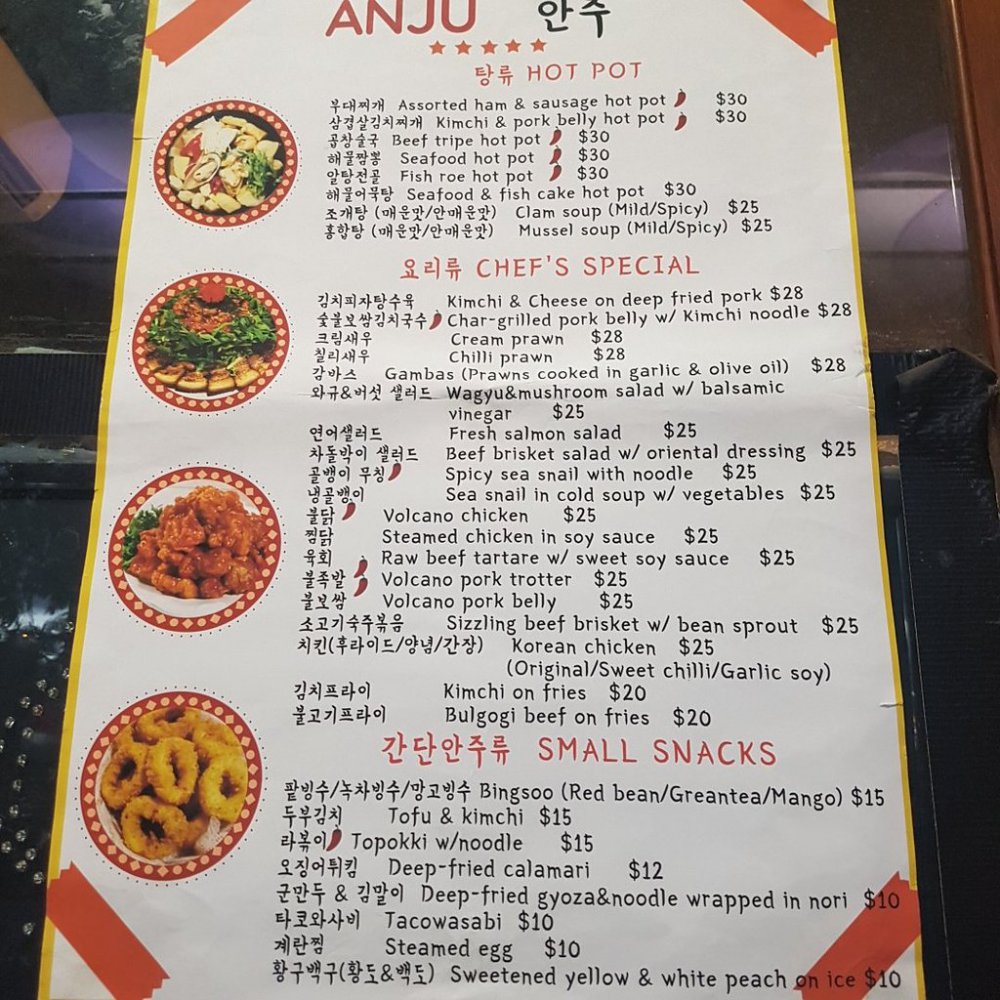 ANJU 안주
탕류 HOT POT
부대찌개 Assorted ham & sausage hot pot $30
삼겹살김치찌개 Kimchi & pork belly hot pot $30
곱창술국 Beef tripe hot pot $30
해물짬뽕 Seafood hot pot $30
알탕전골 Fish roe hot pot $30
해물어묵탕 Seafood & fish cake hot pot $30
조개탕 (매운맛/안매운맛) Clam soup (Mild/Spicy) $25
홍합탕 (매운맛/안매운맛) Mussel soup (Mild/Spicy) $25
요리류 CHEF'S SPECIAL
김치피자탕수육 Kimchi & Cheese on deep fried pork $28
숯불보쌈김치국수 Char-grilled pork belly w/ Kimchi noodle $28
크림새우 Cream prawn $28
칠리새우 Chilli prawn $28
감바스 Gambas (Prawns cooked in garlic & olive oil) $28
와규&버섯 샐러드 Wagyu&mushroom salad w/ balsamic
vinegar $25
연어샐러드 Fresh salmon salad $25
차돌박이 샐러드 Beef brisket salad w/ oriental dressing $25
골뱅이 무침 Spicy sea snail with noodle $25
냉골뱅이 Sea snail in cold soup w/ vegetables $25
불닭 Volcano chicken $25
찜닭 Steamed chicken in soy sauce $25
육회 Raw beef tartare w/ sweet soy sauce $25
불족발 Volcano pork trotter $25
불보쌈 Volcano pork belly $25
소고기숙주볶음 Sizzling beef brisket w/ bean sprout $25
치킨(후라이드/양념/간장) Korean chicken $25
(Original/Sweet chilli/Garlic soy)
김치프라이 Kimchi on fries $20
불고기프라이 Bulgogi beef on fries $20
간단안주류 SMALL SNACKS
팥빙수/녹차빙수/망고빙수 Bingsoo (Red bean/Greantea/Mango) $15
두부김치 Tofu & kimchi $15
라볶이 Topokki w/noodle $15
오징어튀김 Deep-fried calamari $12
군만두 & 김말이 Deep-fried gyoza&noodle wrapped in nori $10
타코와사비 Tacowasabi $10
계란찜 Steamed egg $10
황구백구(황도&백도) Sweetened yellow & white peach on ice $10